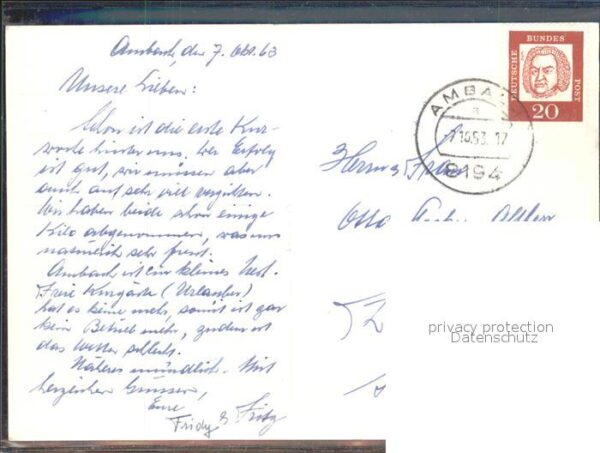 Ambach, den 7. Okt. 63
Unsere Lieben:
Schon ist die erste Kur-
woche hinter uns, der Erfolg
ist gut, wir müssen aber
auch auf sehr viel verzichten.
Wir haben beide schon einige
Kilo abgenommen, was uns
natürlich sehr freut.
Ambach ist ein kleines Nest.
Freie Kurgäste (Urlauber)
hat es keine mehr, somit ist gar
kein Betrieb mehr, zudem ist
das Wetter schlecht.
Näheres mündlich. Mit
herzlichen Grüssen,
Eure
Fridy & Fritz
DEUTSCHE
BUNDES
POST
20
AMBA
a
-7.10.63.17
8194
Herrn
Otto
privacy protection
Datenschutz